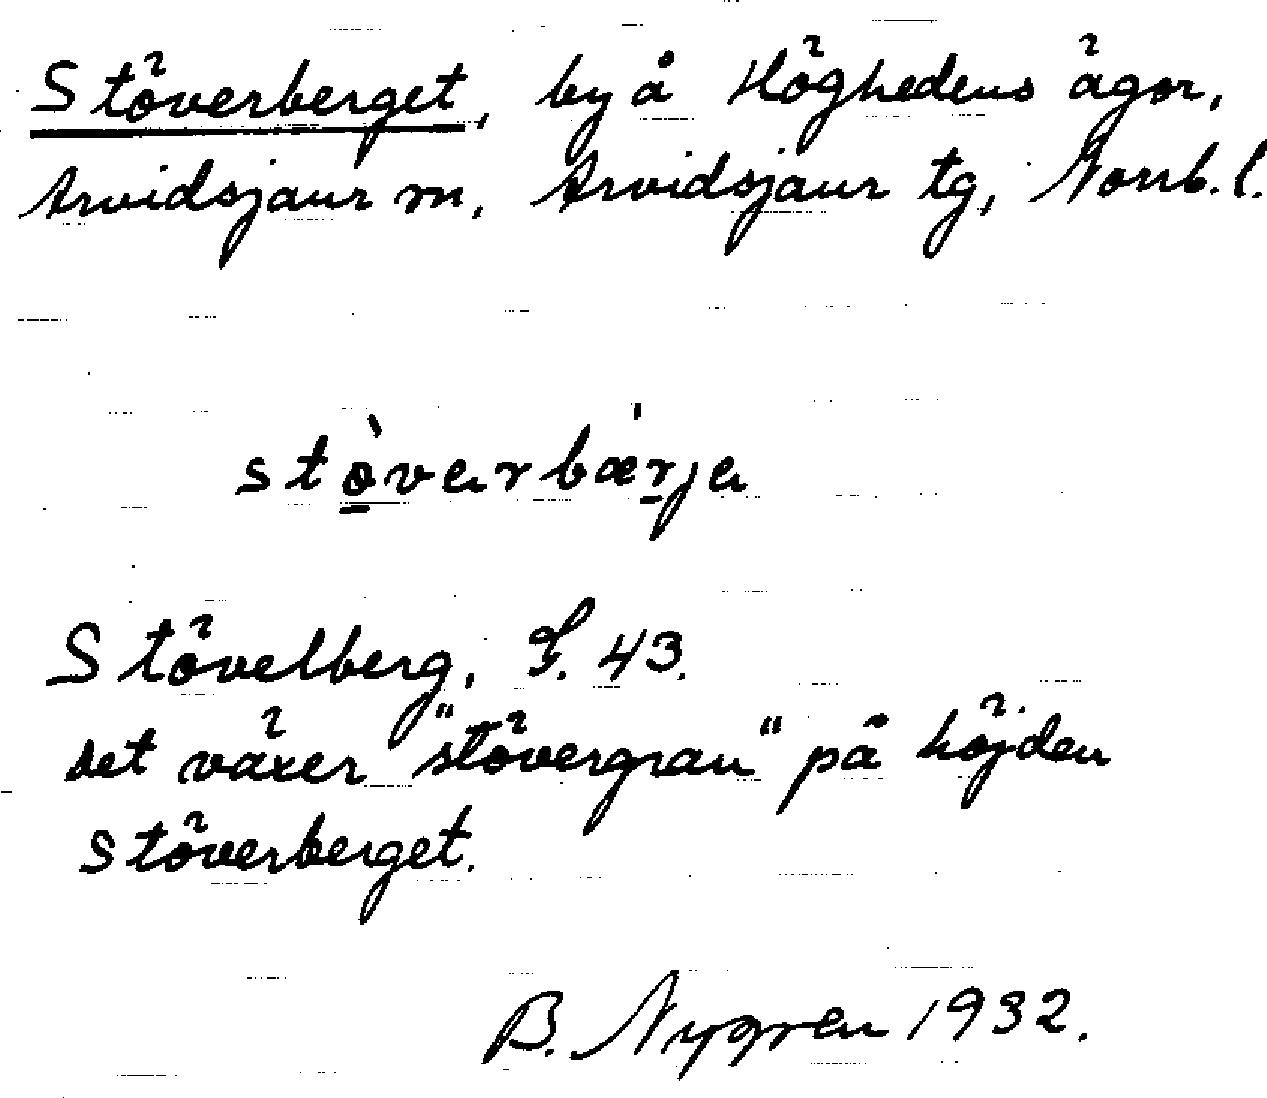 Stöverberget, by å Höghedens ägor,
Arvidsjaur sn, Arvidsjaur tg, Norrb. l.
stø̀värbærja
Stövelberg, G. 43.
det växer "stövergran" på höjden
Stöverberget.
B. Nygren 1932.